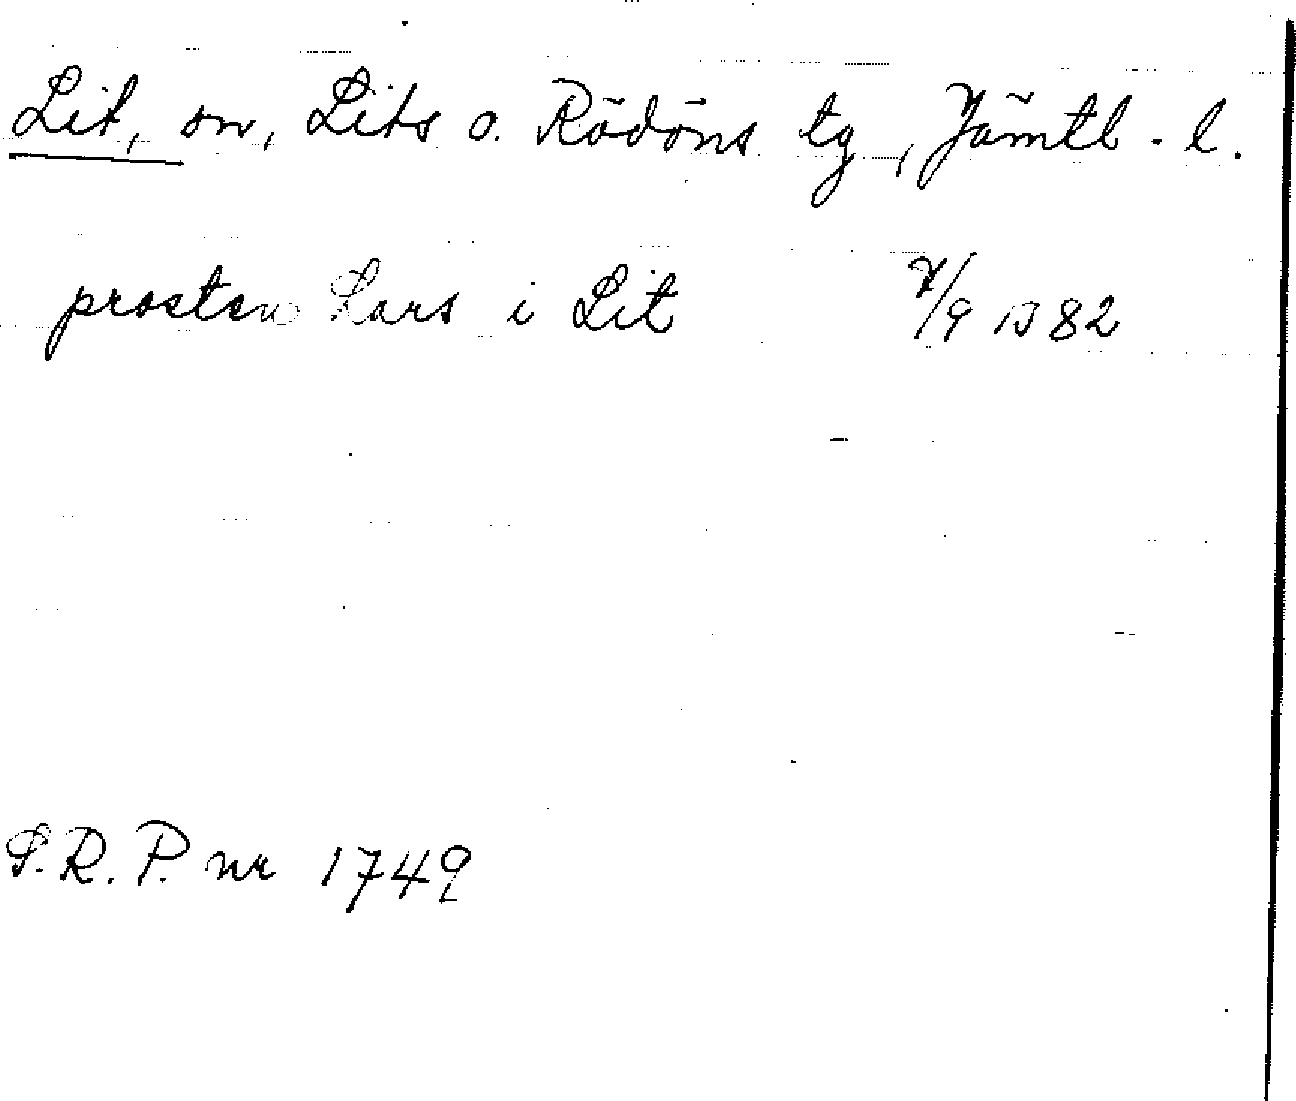 Lit, sn, Lits o. Rödöns tg, Jämtl. l.
prosten Lars i Lit 7/9 1382
S.R.P. nr 1749